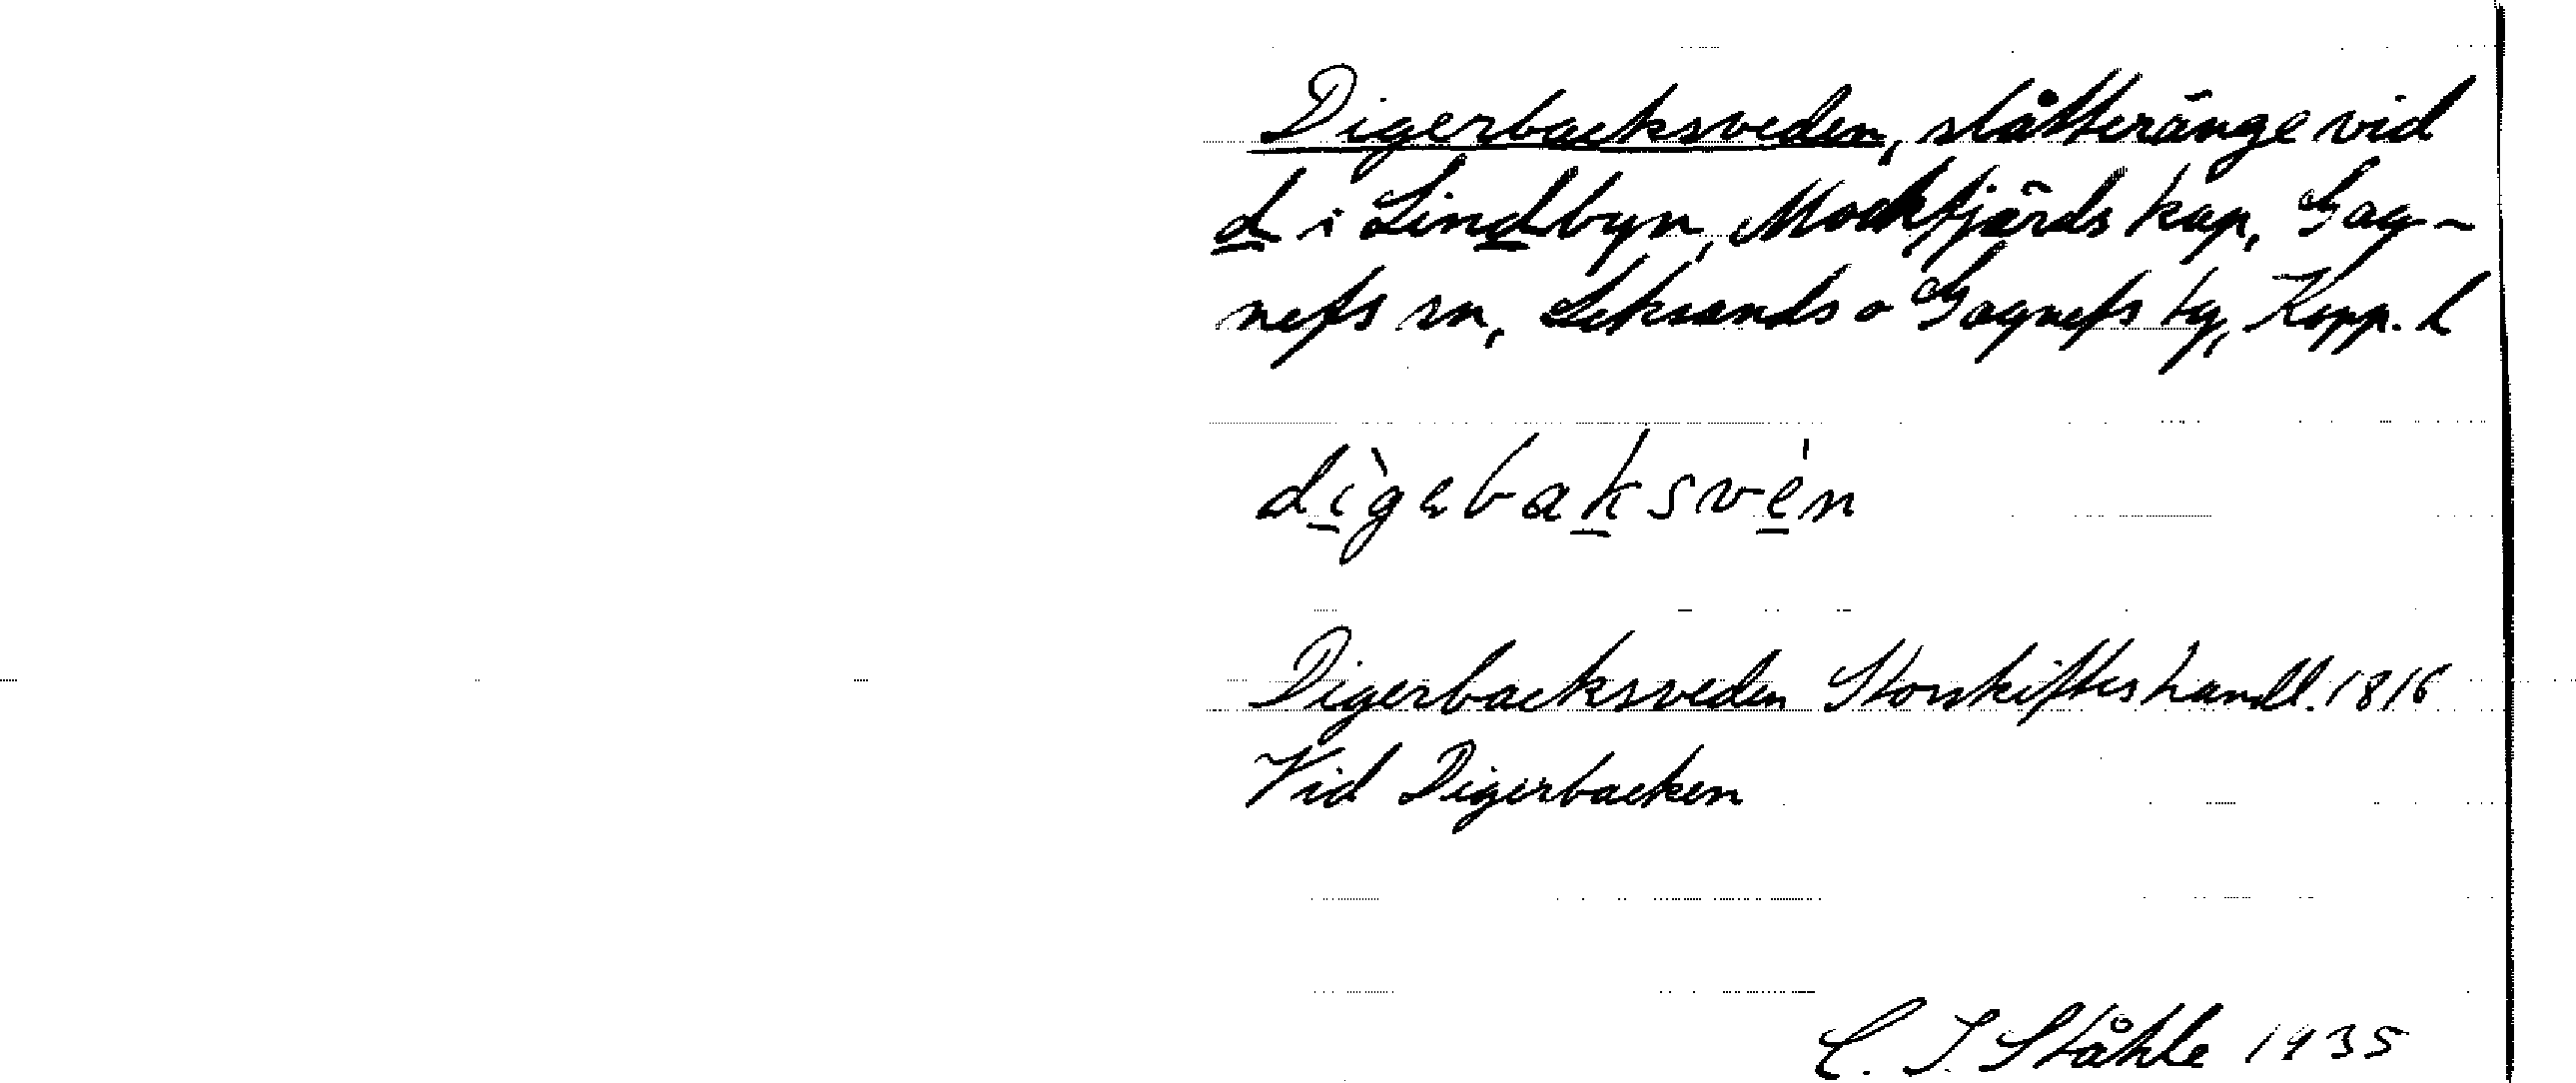 Digerbacksveden, slåtteränge vid
d i Lindbyn, Mockfjärds kap, Gag-
nefs sn, Leksands o Gagnefs tg, Kopp. l
dìgebaksve̍n
Digerbacksveden Storskifteshandl. 1816
Vid Digerbacken
C. I. Ståhle 1935